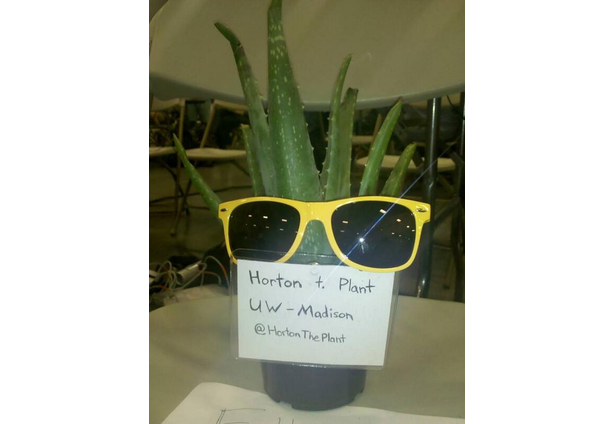 Horton t. Plant
UW-Madison
@HortonThePlant